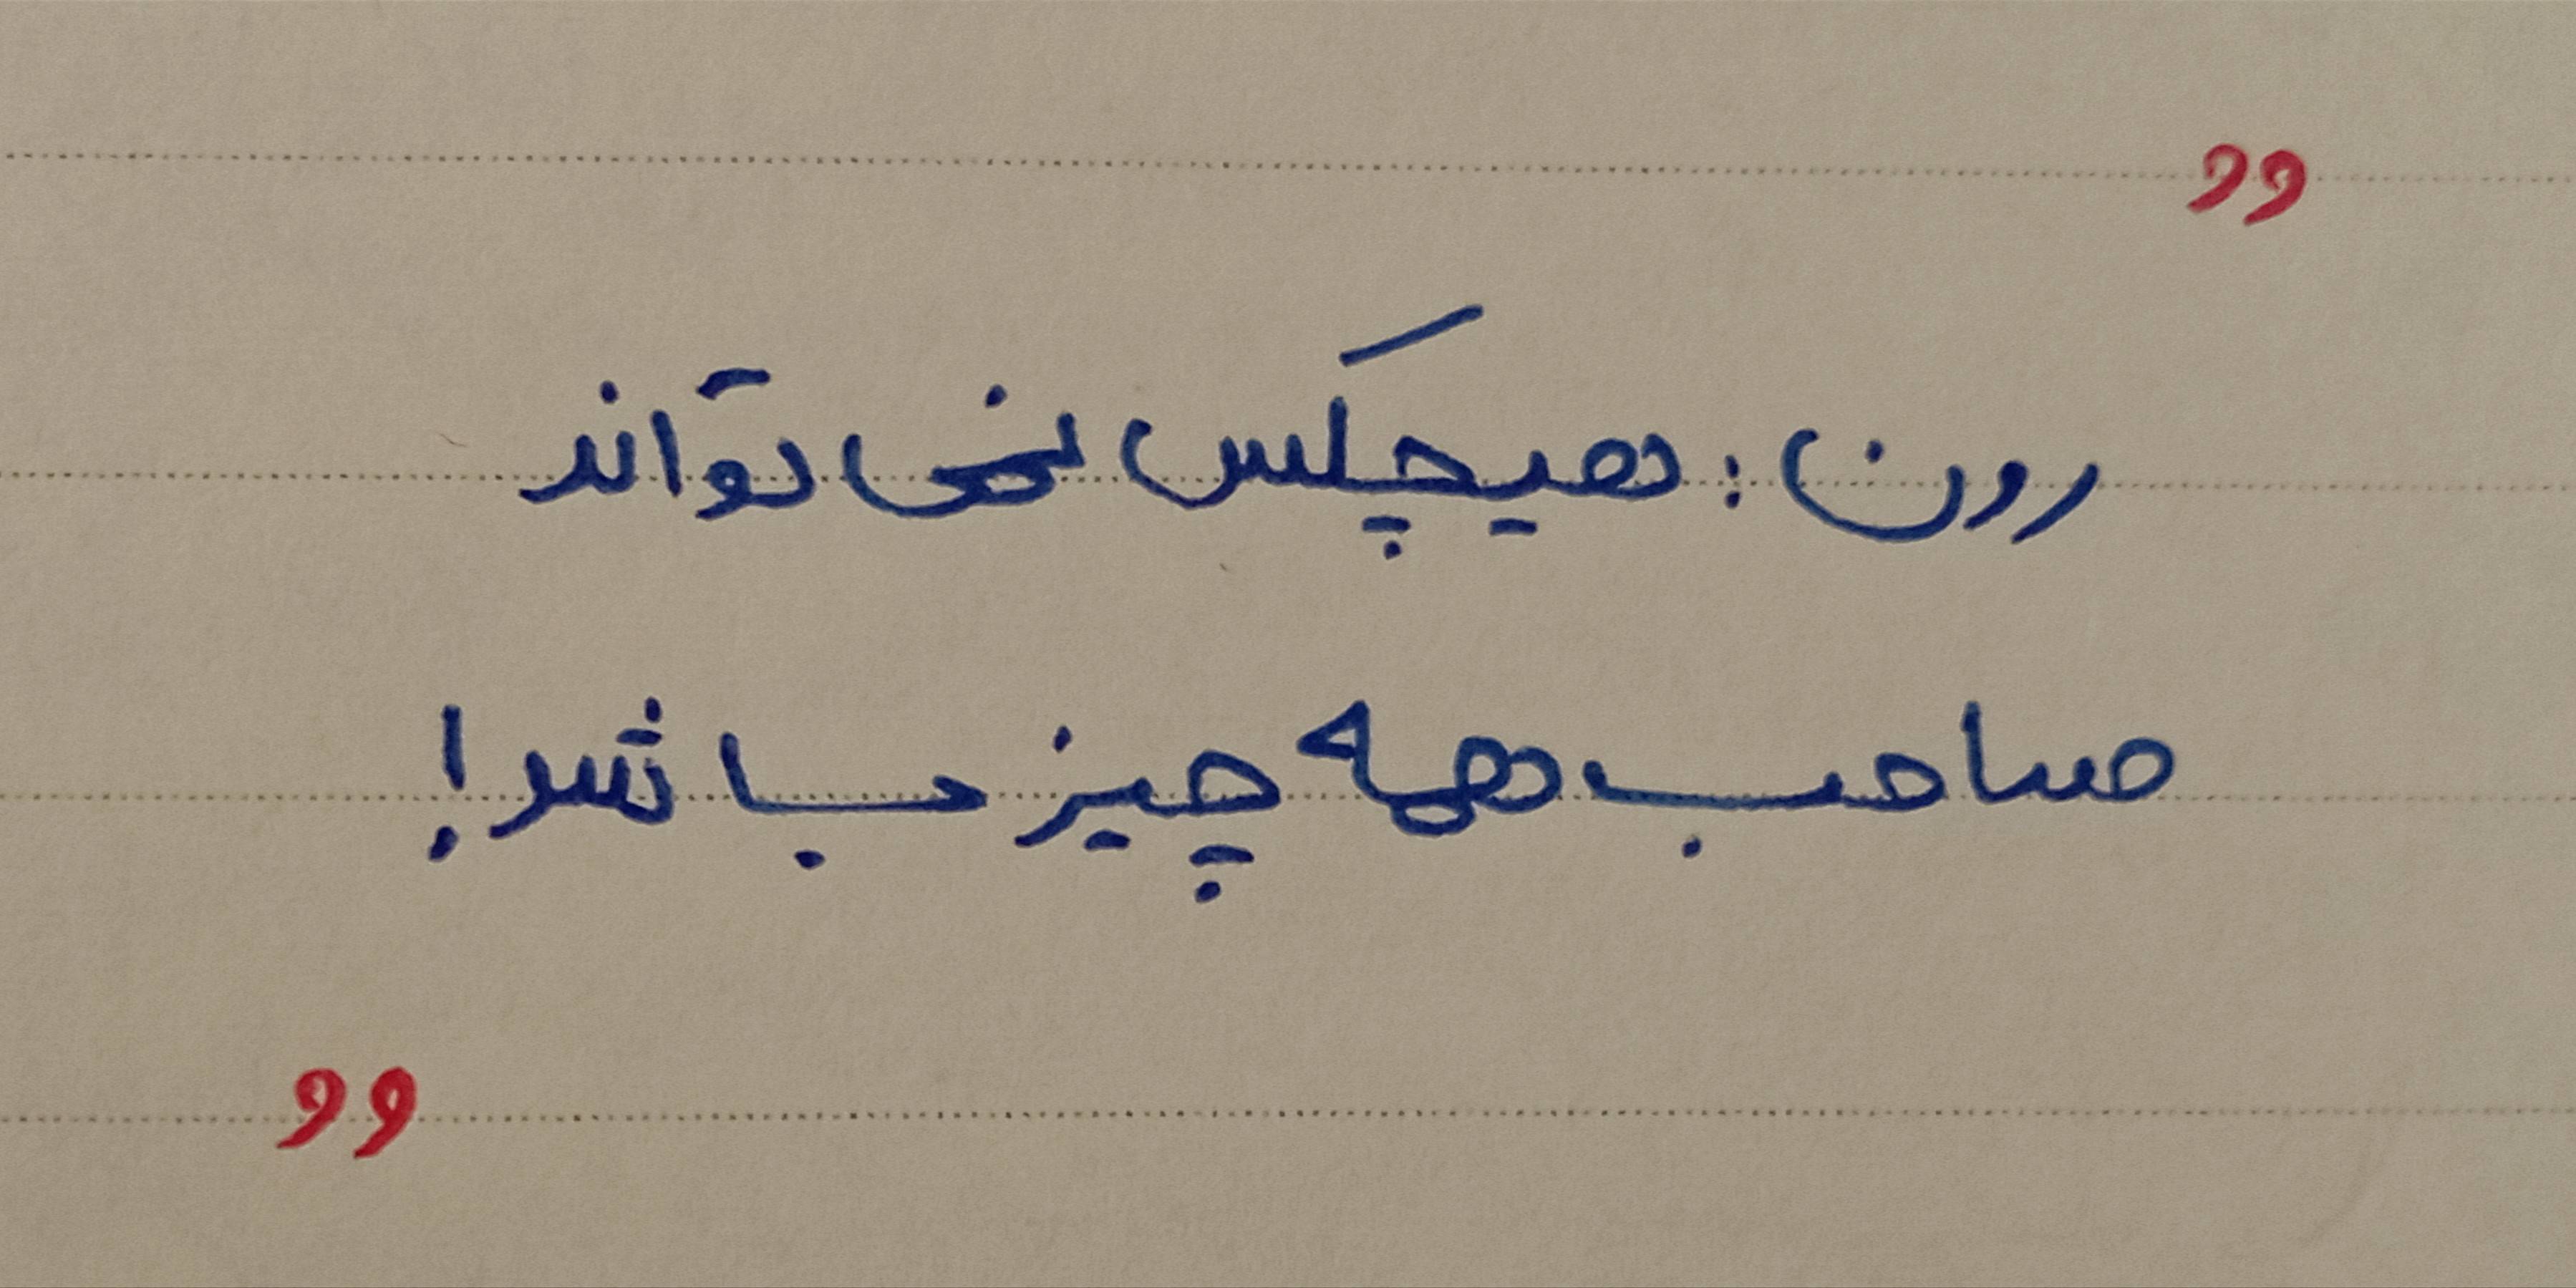 ,,
رون : هیچکس نمی تواند
صاحب همه چیز باشد!
,,